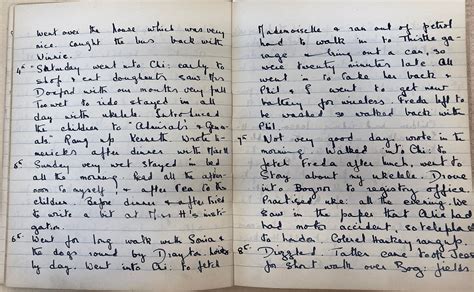 went over the house which was very
nice. Caught the bus back with
Winnie.
4th. Saturday went into Chi: early to
shop & eat doughnuts saw Mrs
Doxford with our months very full
Too wet to ride stayed in all
day with ukelele. Introduced
the children to "Admirals & Quads"
Rang up Kenneth wrote
after dinner with
5th. Sunday very wet stayed in bed
all the morning. Read all the afternoon
to myself & after Tea to the
children. Before dinner & after tried
to write a bit at Mrs H's instigation.
6th. Went for long walk with Sonia &
the dogs round by Drayton.
by day. Went into Chi: to fetch
Mademoiselle & ran out of petrol
had to walk in to Thistle garage
& bring out a car, so
were twenty minutes late. All
went in to take her back &
Phil & I went to get new
battery for wireless. Freda left to
be washed so walked back with
Phil.
7th. Not very good day. wrote in the
morning. Walked into Chi: to
fetch Freda after lunch, went to
about my ukelele. Drove
into Bognor to registry office.
Practised uke: all the evening. We
saw in the paper that had
had motor accident, so telephoned
to London. Colonel rang up.
8th. Drizzled. Tatler came took Jess
for short walk over Bog: fields